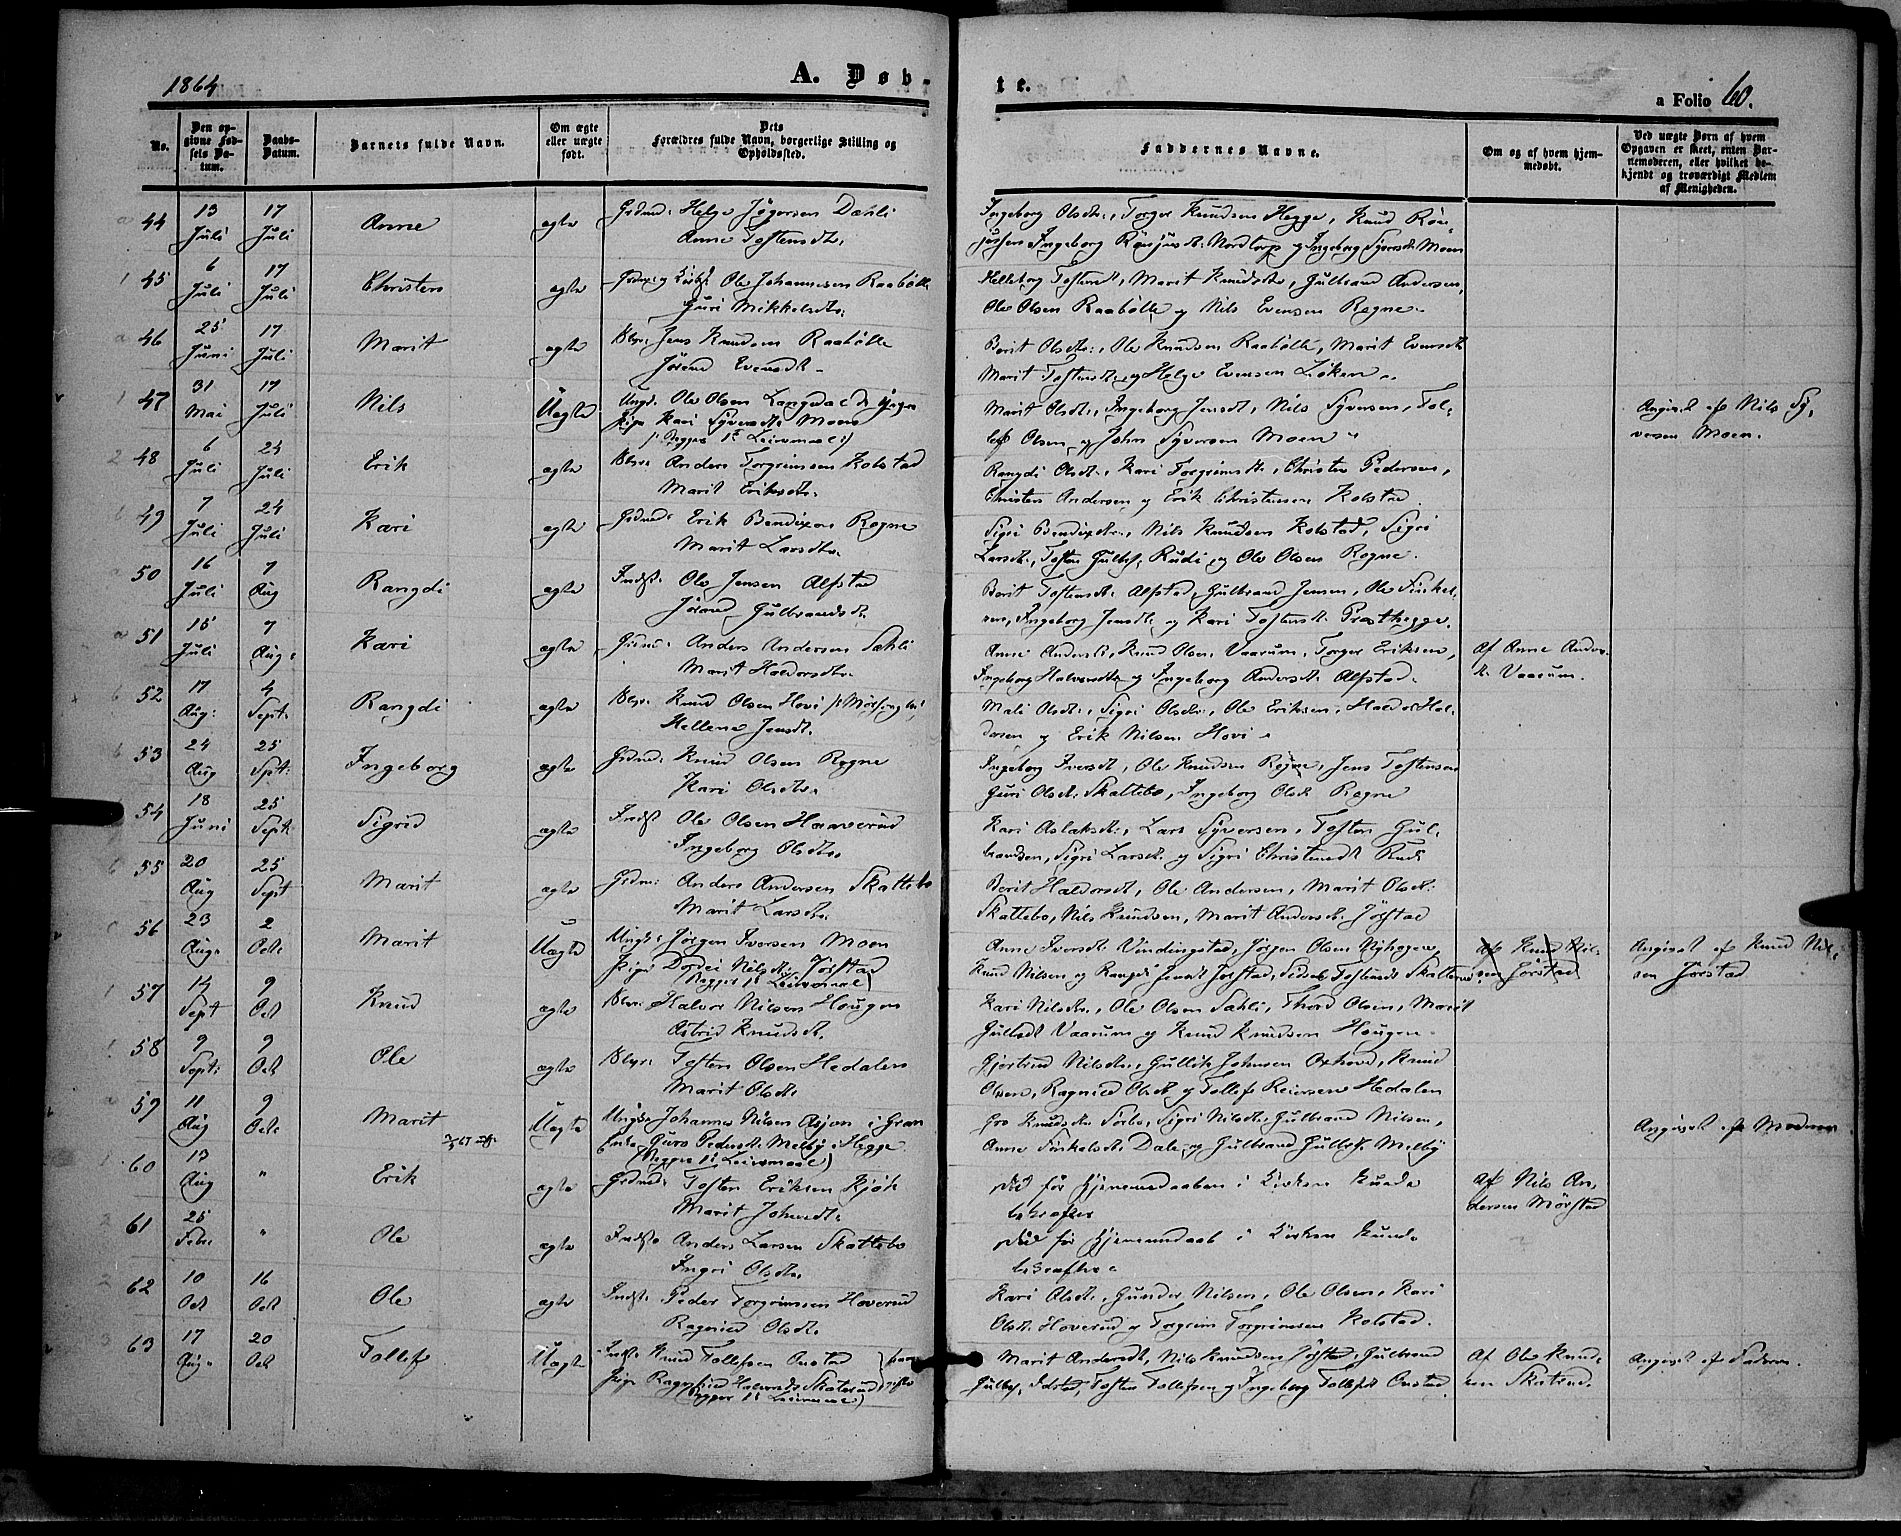 1864
A. Døb-
te.
a Folio 60.
No.
Den op-
givne Fød-
sels Da-
tum.
Daabs-
Datum.
Barnets fulde Navn.
Om ægte
eller uægte
født.
Dets
Forældres fulde Navn, borgerlige Stilling og
Opholdssted.
Faddernes Navne.
Om og af hvem hjem-
medøbt.
Ved uægte Børn af hvem
Opgaven er skeet, enten Bar-
nemoderen, eller hvilket be-
kjendt og troværdigt Medlem
af Menigheden.
44 13 Juli 17 Juli Anne ægte Helge Dæhli
Anne Tostensdtr.
Ingeborg Olsdtr., Torger Knudsen Hegge, Knud
Ingeborg Nordtorp og Ingeborg Syversdtr. Moen
45 6 Juli 17 Juli Christen ægte Ole Johannesen Raabølle
Guri Mikkelsdtr.
Marit Knudsdtr., Gulbrand Andersen,
Ole Olsen Raabølle og Nils Evensen Rogne.
46 25 Juni 17 Juli Marit ægte Jens Knudsen Raabølle
Jørend Evensdtr.
Berit Olsdtr., Ole Knudsen Raabølle, Marit Evensdtr
Marit Tostensdtr. og Helge Evensen Løken
47 31 Mai 17 Juli Nils Uægte Ungk. Ole Olsen
Pige Kari Syversdtr. Moen
(: Begges 1ste Leiermaal :)
Marit Olsdtr., Ingeborg Jensdtr., Nils Syversen, Tol-
lef Olsen og John Syversen Moen
Angivet af Nils Sy-
versen Moen.
48 6 Juli 24 Juli Erik ægte Anders Torgrimsen Kolstad
Marit Eriksdtr.
Rangdi Olsdtr., Kari Torgrimsdtr., Christen Pedersen,
Christen Andersen og Erik Christensen Kolstad
49 7 Juli 24 Juli Kari ægte Grdmd. Erik Bendixen Rogne
Marit Larsdtr.
Sigri Bendixdtr., Nils Knudsen Kolstad, Sigri
Larsdtr., Tosten Gulbs. Rudi og Ole Olsen Rogne.
50 16 Juli 7 Aug Rangdi ægte Indst. Ole Jensen Alfstad
Jørend Gulbrandsdtr.
Berit Tostensdtr. Alfstad, Gulbrand Jensen, Ole Finkel-
sen, Ingeborg Jensdtr. og Kari Tostensdtr. Prasthegge.
51 15 Juli 7 Aug. Kari ægte Grdmd. Anders Andersen Sahli
Marit Haldorsdtr.
Anne Andersdtr., Knud Olsen Vaarum, Torger Eriksen,
Ingeborg Halvorsdtr. og Ingeborg Andersdtr. Alfstad.
Af Anne Anders-
dtr. Vaarum.
52 17 Aug. 4 Sept. Rangdi ægte Knud Olsen Hovi
Hellene Jensdtr.
Mali Olsdtr., Sigri Olsdtr., Ole Eriksen, Haldor Hal-
dorsen og Erik Nilsen Hovi
53 24 Aug 25 Spt. Ingeborg ægte Grdmd. Knud Olsen Rogne
Kari Olsdtr.
Ingeborg Iversdtr., Ole Knudsen Rogne, Jens Tostensen
Guri Olsdtr. Skattebo, Ingeborg Olsdtr. Rogne
54 18 Juni 25 Sept. Sigrid ægte Indst. Ole Olsen Haaverud
Ingeborg Olsdtr.
Kari Aslaksdtr., Lars Syversen, Tosten Gul-
brandsen, Sigri Larsdtr. og Sigri Christensdtr. Rudi
55 20 Aug 25 Sept Marit ægte Grdmd. Anders Andersen Skattebo
Marit Larsdtr.
Berit Haldorsdtr., Ole Andersen, Marit Olsdtr.
Skattebo, Nils Knudsen, Marit Andersdtr. Jørstad
56 23 Aug. 2 Oct. Marit Uægte Ungk. Jørgen Iversen Moen
Pige Nilsdtr. Jørstad
(Begges 1ste Leiermaal)
Anne Iversdtr. Vindingstad, Jørgen Olsen Nyhagen,
Knud Nilsen og Rangdi Jensdtr. Jørstad, Tostensdtr. Skattebo
Af Knud Nil-
sen Jørstad
Angivet af Knud Nil-
sen Jørstad
57 14 Sept 9 Oct Knud ægte Halvor Nilsen Hougen
Astrid Knudsdtr.
Kari Nilsdtr., Ole Olsen Sahli, Thord Olsen, Marit
Gulbsdt. Vaarum og Knud Knudsen Hougen.
58 9 Sept. 9 Oct Ole ægte Tosten Olsen Hedalen
Marit Olsdtr.
Gjertrud Nilsdtr., Gullik Johnsen Oxhovd, Knud
Olsen, Ragnild Olsdtr. og Tollef Reiersen Hedalen
59 11 Aug 9 Oct. Marit Uægte Ungk. Johannes Nilsen i Gran
Enke Guro Pedersdtr. Melby i Hegge
(Begges Leiermaal)
Gro Knudsdtr. Sorbo, Sigri Nilsdtr., Gulbrand Nilsen,
Anne Finkelsdtr. Dale og Gulbrand Gulbs. Melby
Angivet af Moderen.
60 13 Aug " Erik ægte Grdmd. Tosten Eriksen Kjøk
Marit Johnsdtr.
Død før Hjemmedaaben i Kirken kunde
bekræftes
Af Nils An-
dersen Mørstad
61 25 Febr " Ole ægte Indst. Anders Larsen Skattebo
Ingri Olsdtr.
Død før Hjemmedaab i Kirken kunde
bekræftes.
62 10 Oct 16 Oct. Ole ægte Indst. Peder Torgrimsen Hoverud
Ragnild Olsdtr.
Kari Olsdtr., Gunder Nilsen, Ole Olsen, Kari
Olsdtr. Hoverud og Torgrim Torgrimsen Kolstad.
63 17 Aug. 20 Oct Tollef Uægte Knud Tollefsen Onstad
Pige Ragnhild Halvorsdtr. Skaterud
(Begges 1ste Leiermaal)
Marit Andersdtr., Nils Knudsen Jørstad, Gulbrand
Gulbs. Tosten Tollefsen og Ingeborg Tollefsdtr. Onstad.
Af Ole Knud-
sen Skatrud.
Angivet af Faderen.